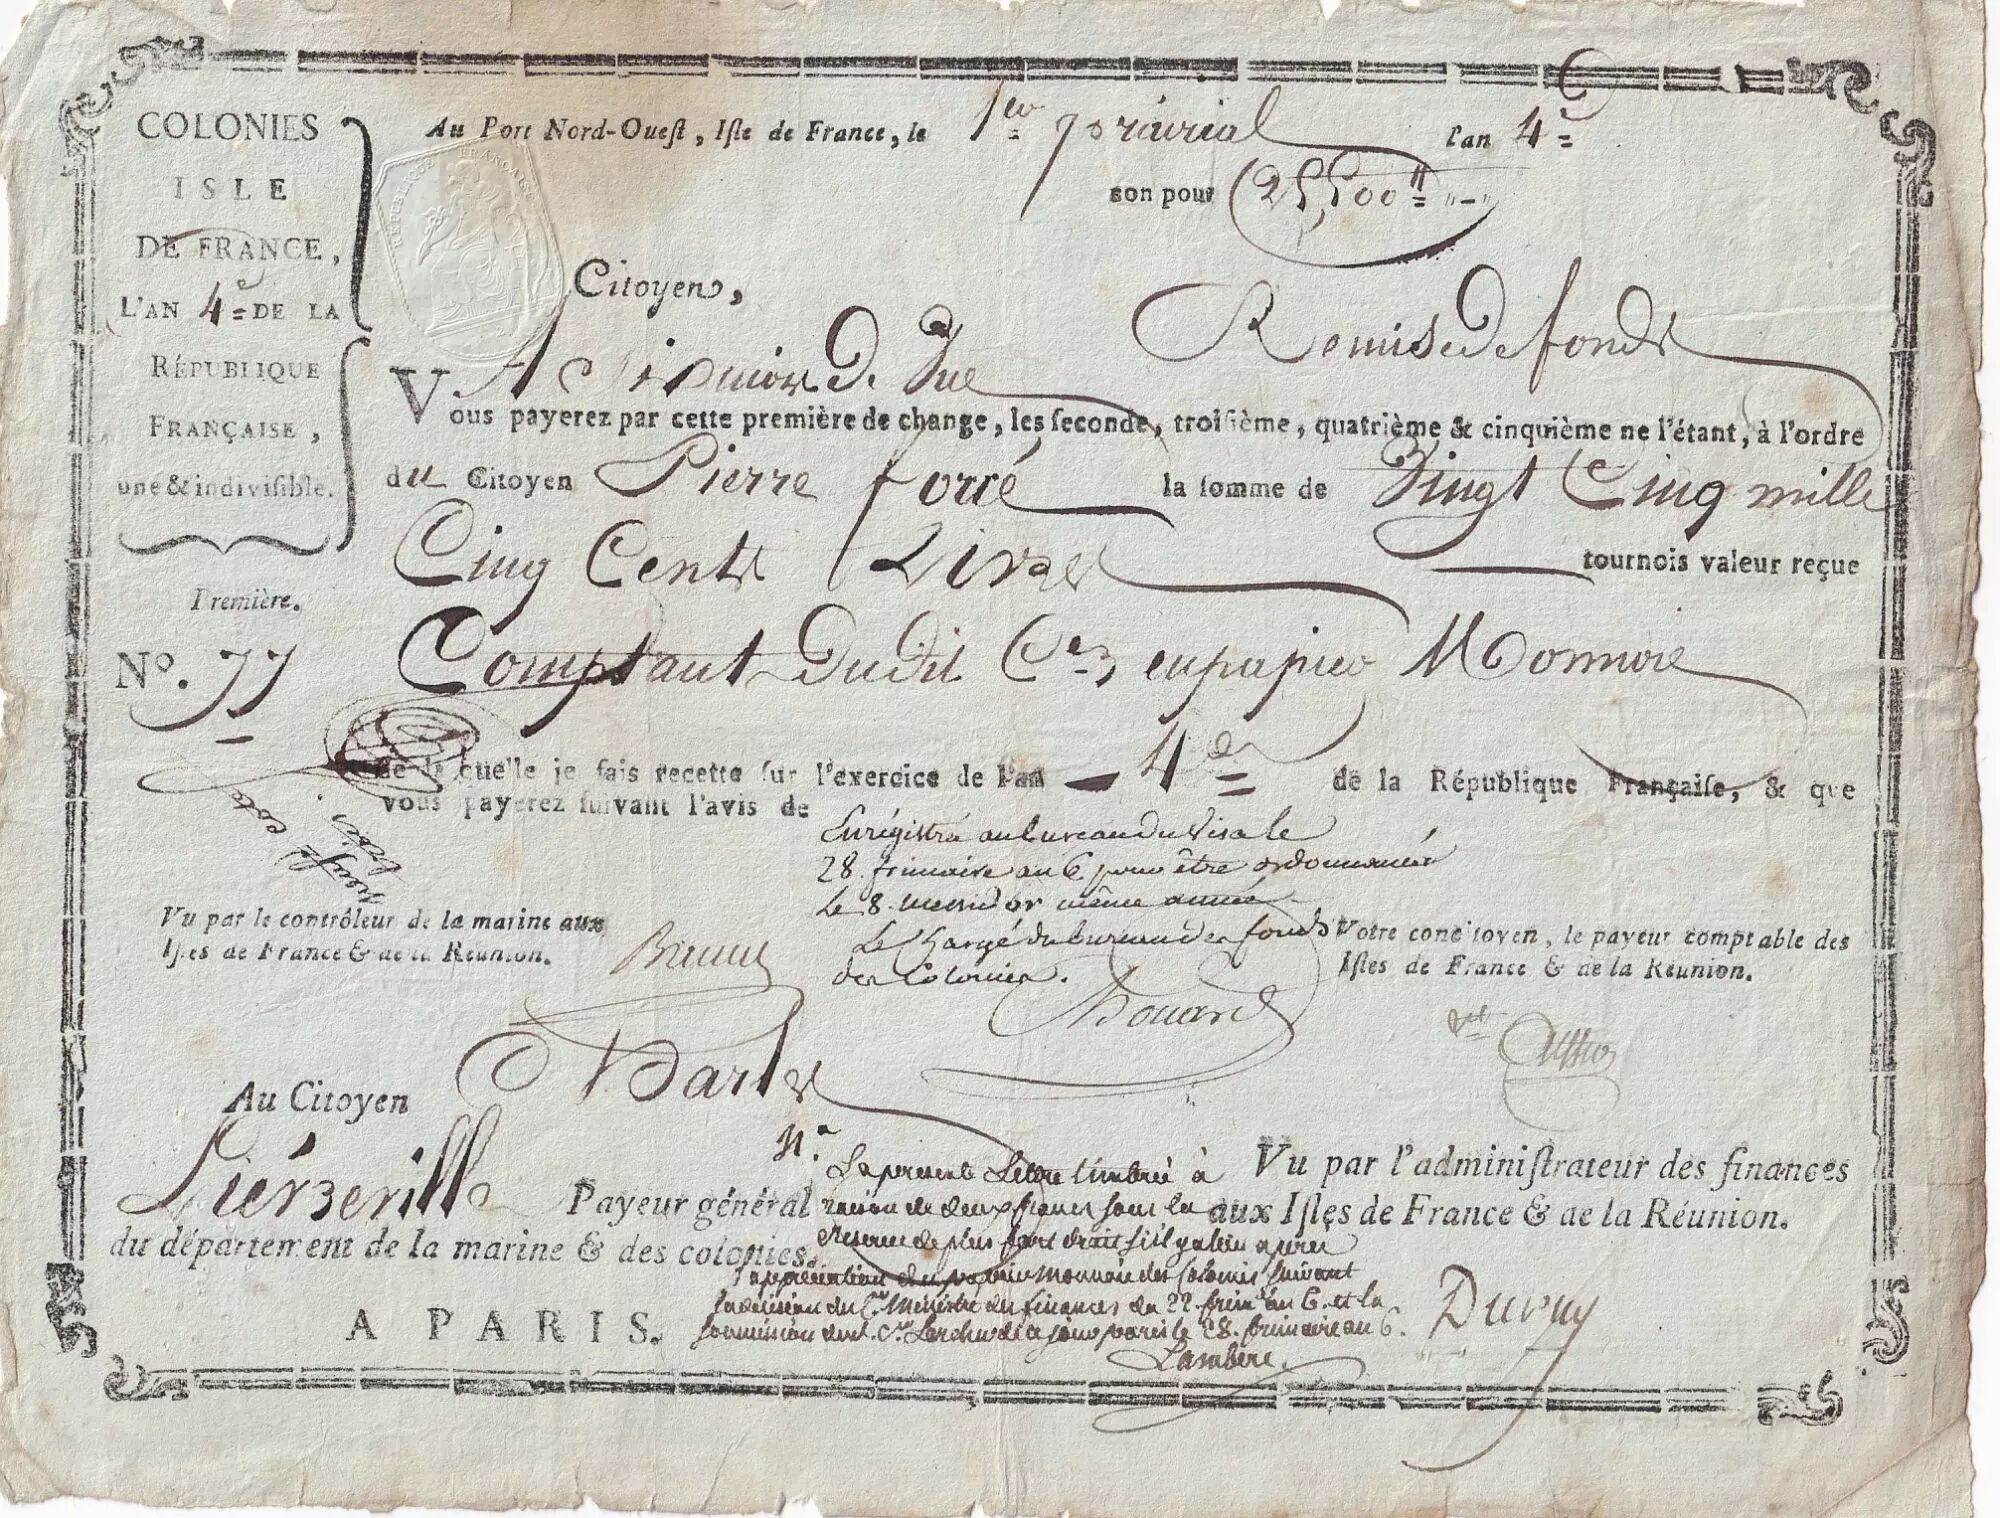 COLONIES
ISLE
DE FRANCE,
L'AN 4e DE LA
RÉPUBLIQUE
FRANÇAISE,
une & indivisible.
Première.
No. 77
RÉPUBLIQUE FRANÇAISE
Au Port Nord-Ouest, Isle de France, le 1er prairial l'an 4e
Bon pour 25,500
Citoyen,
A Six mois de Vue Remise de fonds
Vous payerez par cette première de change, les seconde, troisième, quatrième & cinquième ne l'étant, à l'ordre
du Citoyen Pierre forcé la somme de Vingt Cinq mille
Cinq Cents Livres tournois valeur reçue
Comptant Dudit Cen en papier Monnoie
de laquelle je fais recette sur l'exercice de l'an 4e de la République Française, & que
vous payerez suivant l'avis de
Enrégistré au bureau du Visa le
28. frimaire an 6 pour être ordonnancé
le 8. messidor même année
Le Chargé du bureau des fonds
des Colonies.
Vu par le contrôleur de la marine aux
Isles de France & de la Réunion.
Votre concitoyen, le payeur comptable des
Isles de France & de la Réunion.
Au Citoyen
Payeur général
du département de la marine & des colonies.
A PARIS.
La présente Lettre timbrée à
raison de deux francs sous la
réserve de plus fort droit s'il y a lieu après
l'appréciation du papier monnoie des Colonies suivant
la décision du Cen Ministre des finances du 22. frimre an 6. et la
soumission du Cen de ce jour paris le 28. frimaire an 6.
Lambere
Vu par l'administrateur des finances
aux Isles de France & de la Réunion.
Dupuy